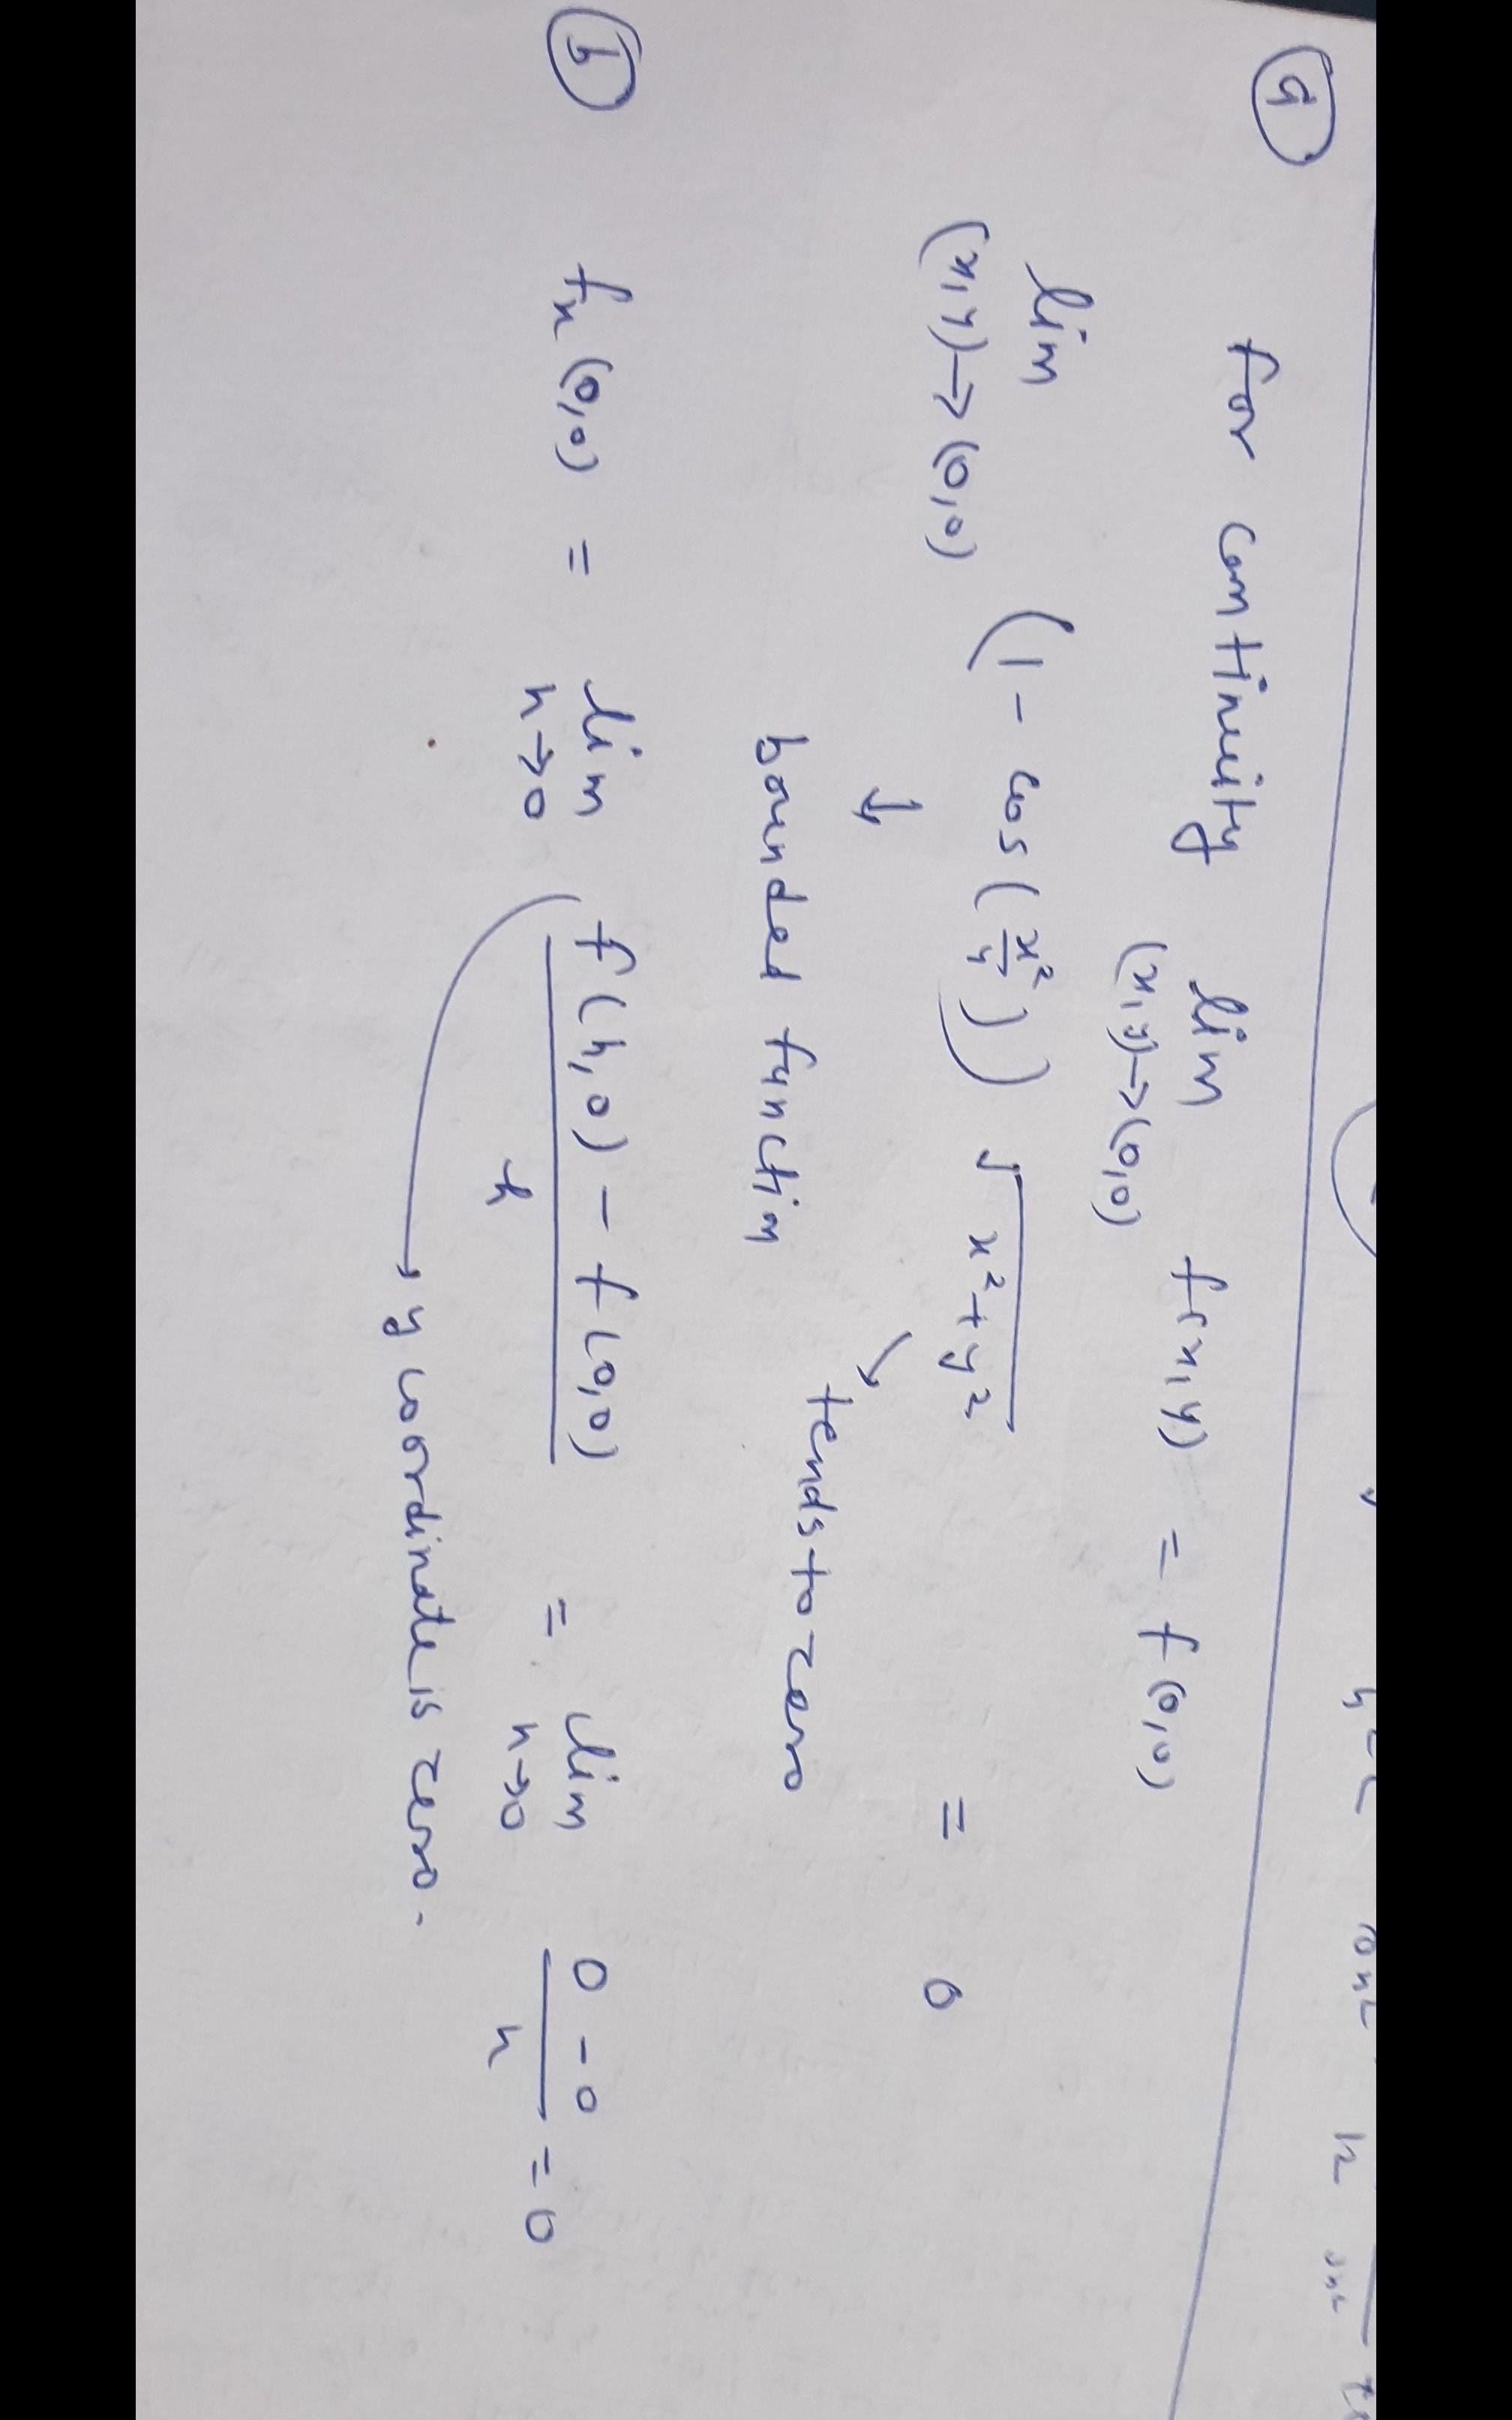 (a) for continuity lim f(x,y) = f(0,0)
(x,y)→(0,0)
lim (1 - cos(x²/y)) √x²+y² = 0
(x,y)→(0,0)
↓ ↘
bounded function tends to zero
(b) fx(0,0) = lim f(h,0) - f(0,0) / h = lim 0 - 0 / h = 0
h→0 h→0
→ y coordinate is zero.